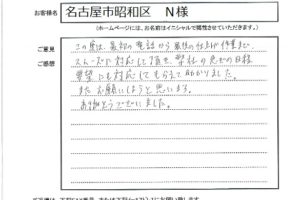 お客様名
名古屋市昭和区 N様
(ホームページには、お名前はイニシャルで掲載させていただきます。)
ご意見
ご感想
この度は、最初の電話から最後の仕上げ作業まで、
スムーズに対応して頂き、弊社の急ぎの日程
要望にも対応してもらえて助かりました。
またお願いしようと思います。
ありがとうございました。